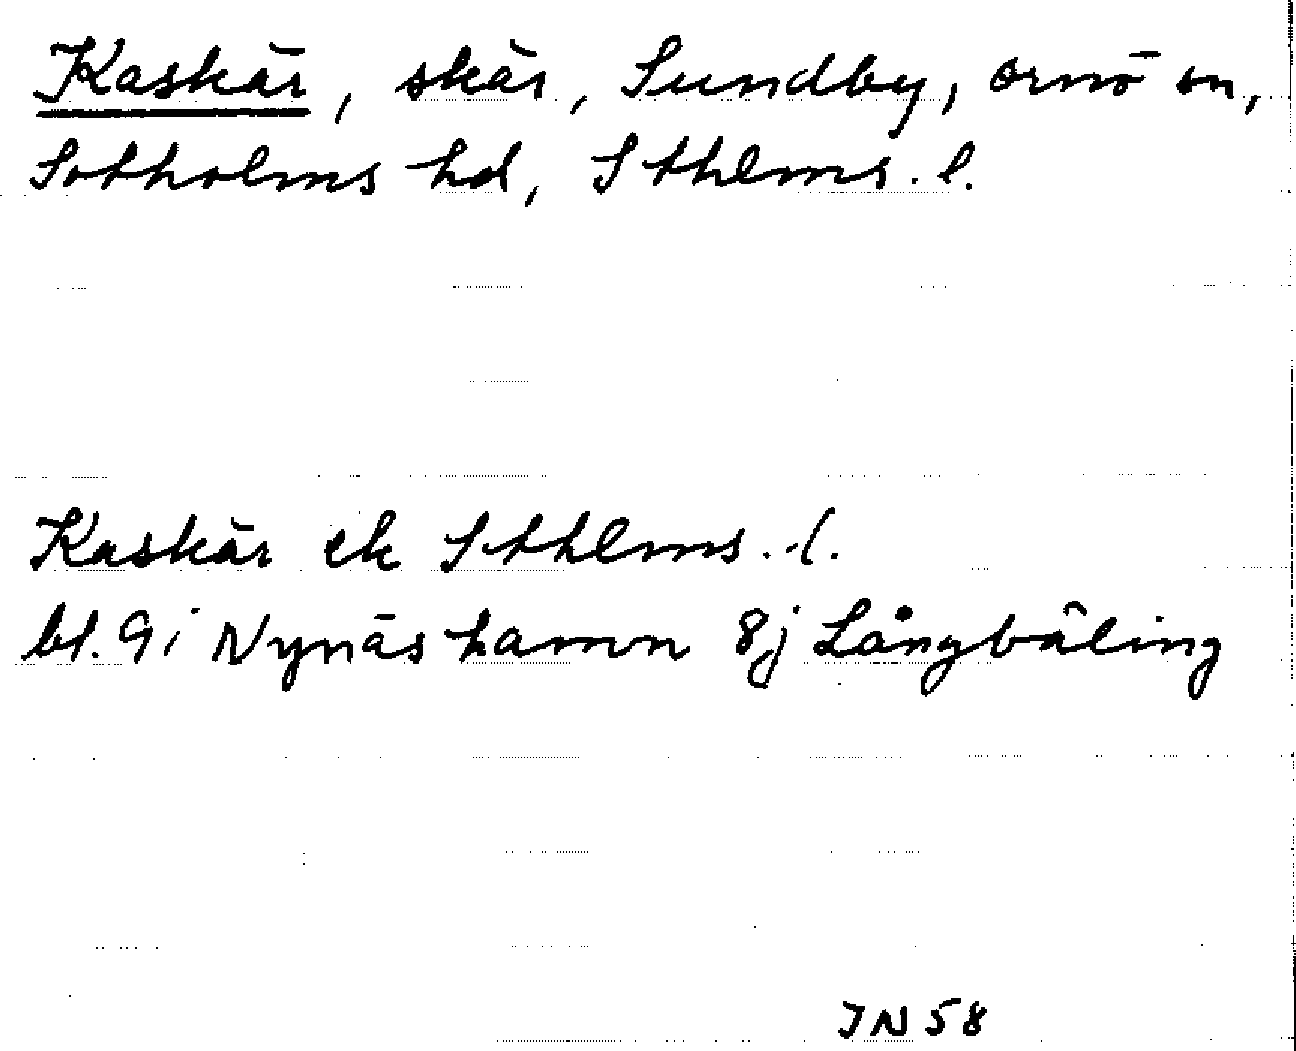 Kaskär, skär, Sundby, Ornö sn,
Sotholms hd, Sthlms. l.
Kaskär ek Sthlms. l.
bl. 9i Nynäshamn 8j Långbäling
JN 58